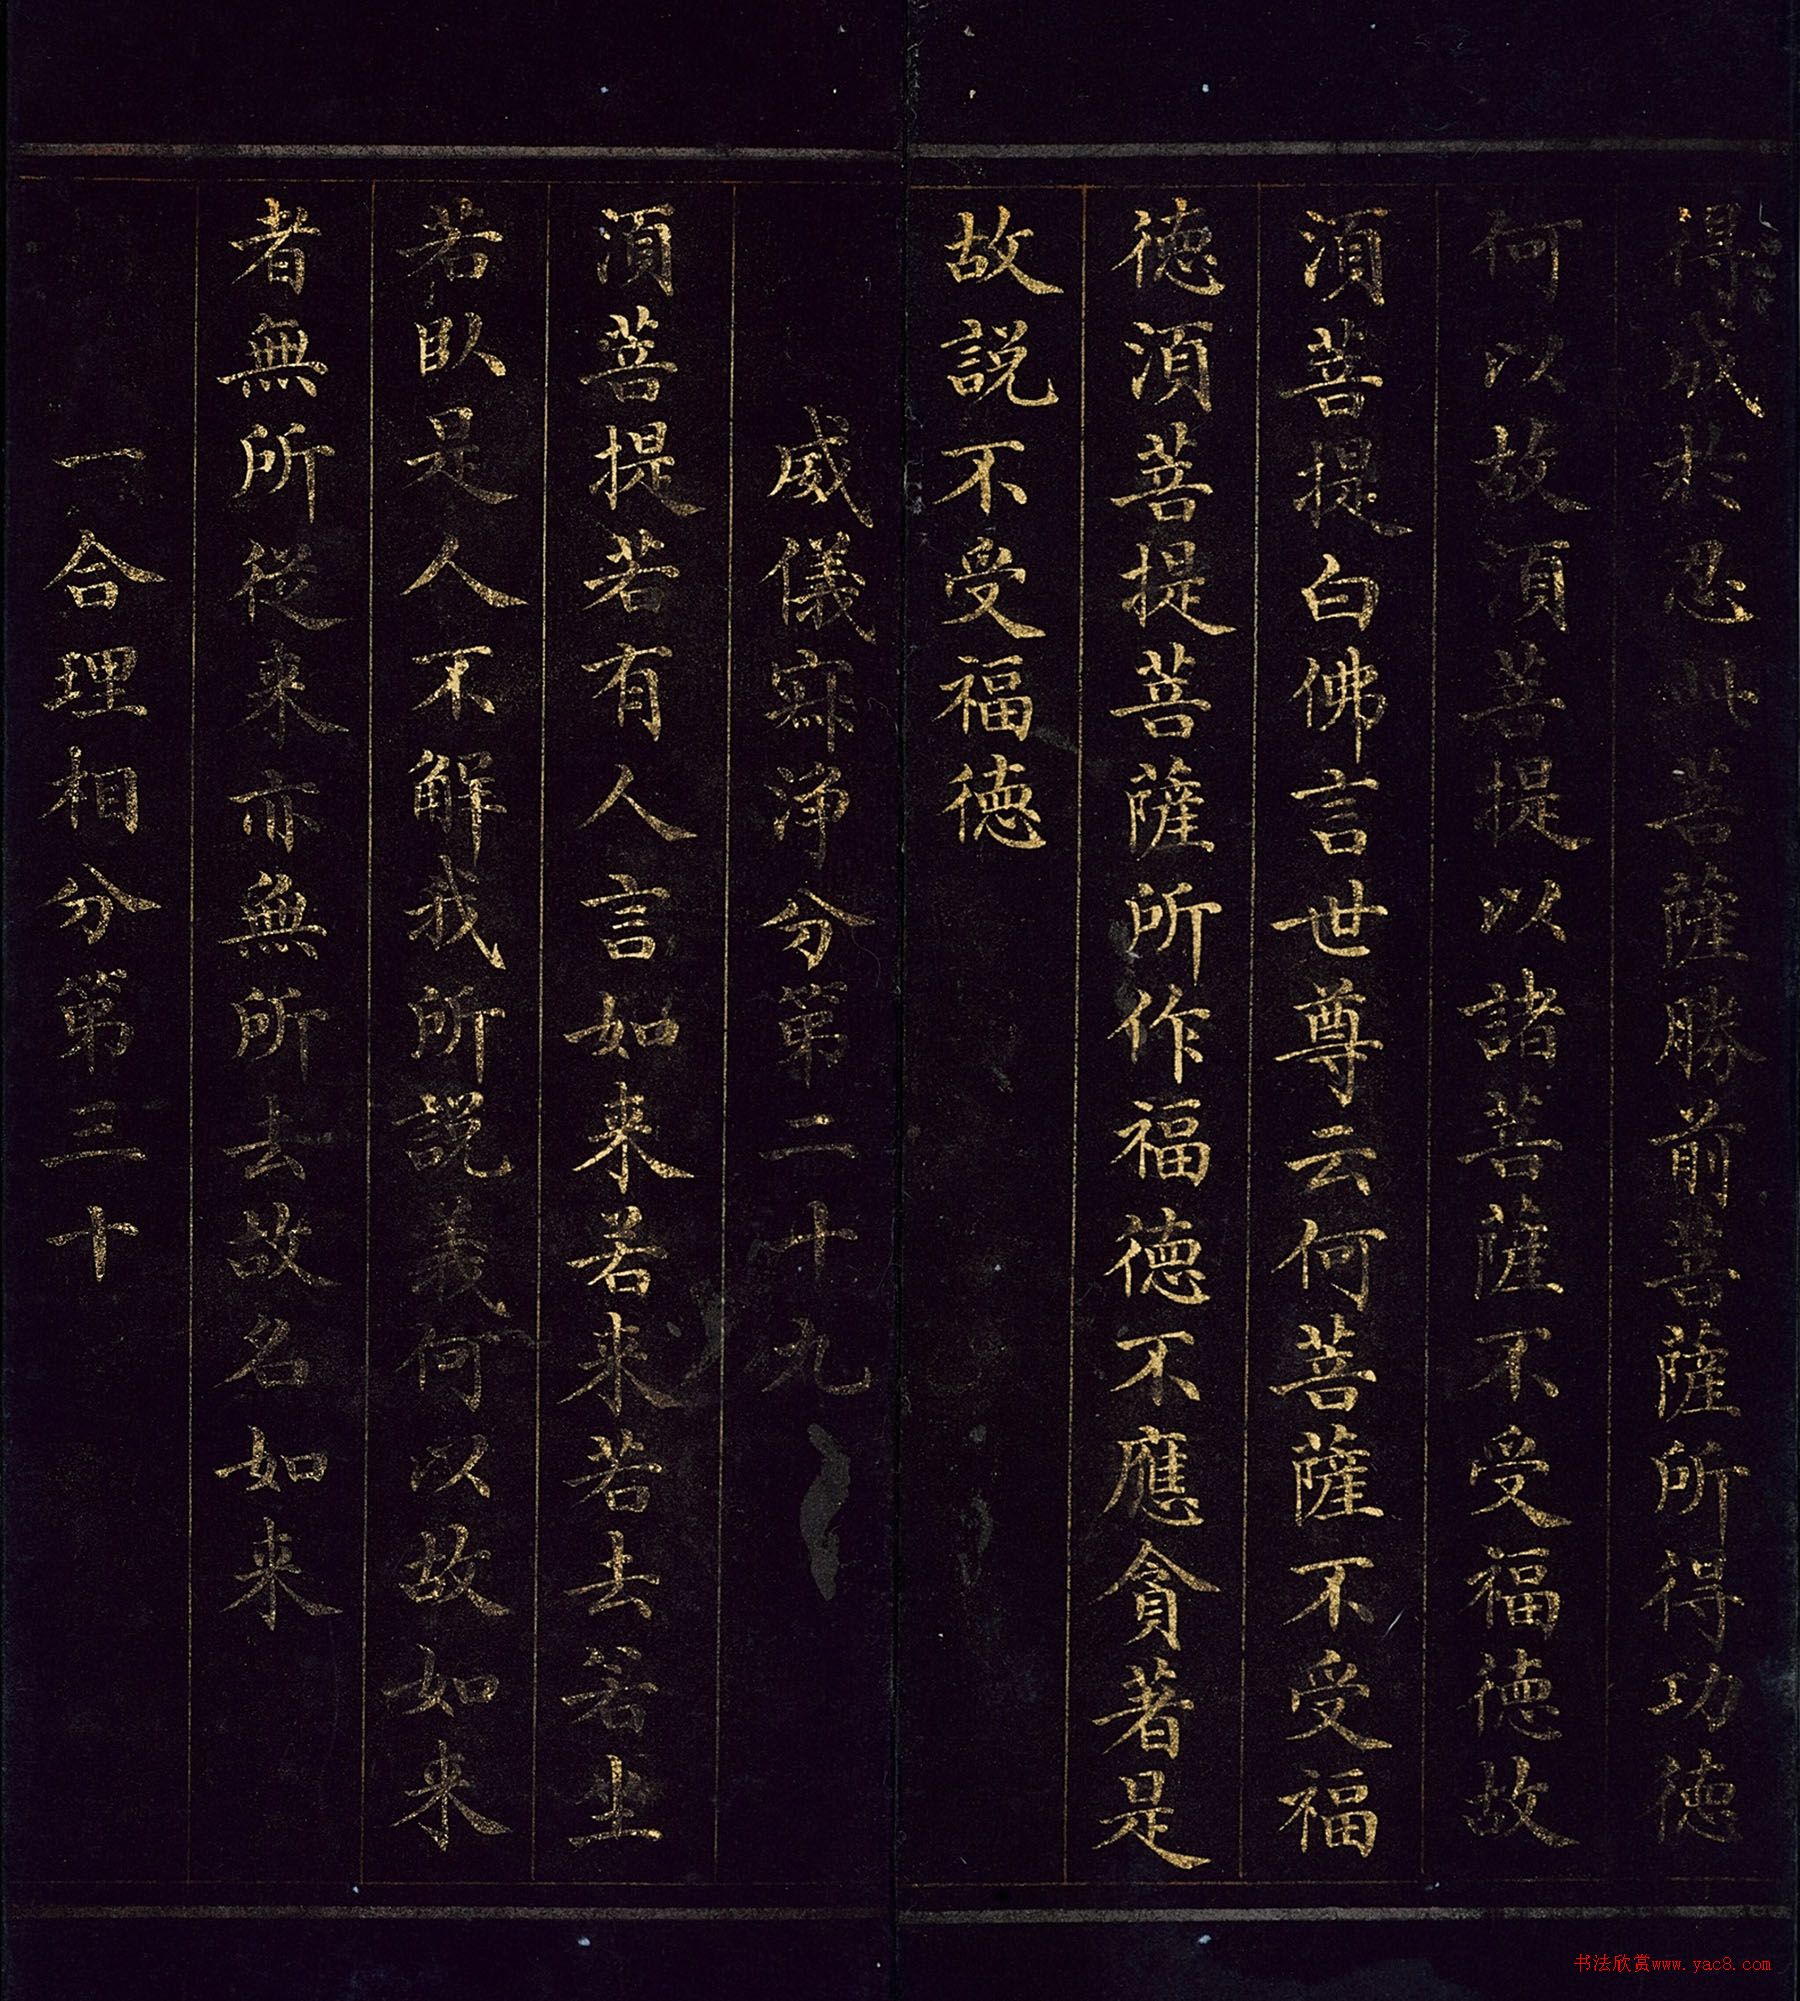 得成於忍此菩薩勝前菩薩所得功德
何以故須菩提以諸菩薩不受福德故
須菩提白佛言世尊云何菩薩不受福
德須菩提菩薩所作福德不應貪著是
故説不受福德
威儀寂淨分第二十九
須菩提若有人言如来若来若去若坐
若臥是人不解我所説義何以故如来
者無所從来亦無所去故名如来
一合理相分第三十
书法欣赏www.yac8.com